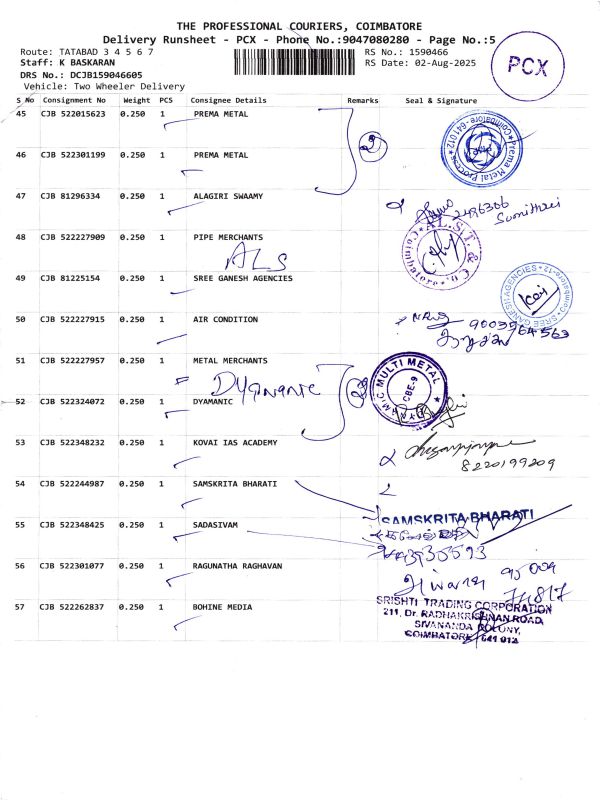 THE PROFESSIONAL COURIERS, COIMBATORE
Delivery Runsheet - PCX - Phone No.:9047080280 - Page No.:5
Route: TATABAD 3 4 5 6 7
RS No.: 1590466
Staff: K BASKARAN
RS Date: 02-Aug-2025
PCX
DRS No.: DCJB159046605
Vehicle: Two Wheeler Delivery
S No Consignment No Weight PCS Consignee Details Remarks Seal & Signature
45 CJB 522015623 0.250 1 PREMA METAL
2
Prema Metal Process Coimbatore - 641012
46 CJB 522301199 0.250 1 PREMA METAL
47 CJB 81296334 0.250 1 ALAGIRI SWAAMY
2496366
Sumithra
48 CJB 522227909 0.250 1 PIPE MERCHANTS
ALS
A.L.S.T. & Co. Coimbatore
49 CJB 81225154 0.250 1 SREE GANESH AGENCIES
SREE GANESH AGENCIES Coimbatore-12
50 CJB 522227915 0.250 1 AIR CONDITION
9003964563
51 CJB 522227957 0.250 1 METAL MERCHANTS
Dynamic
MIC MULTI METAL
CBE-9
52 CJB 522324072 0.250 1 DYAMANIC
53 CJB 522348232 0.250 1 KOVAI IAS ACADEMY
8220199209
54 CJB 522244987 0.250 1 SAMSKRITA BHARATI
SAMSKRITA BHARATI
55 CJB 522348425 0.250 1 SADASIVAM
56 CJB 522301077 0.250 1 RAGUNATHA RAGHAVAN
57 CJB 522262837 0.250 1 BOHINE MEDIA
SRISHTI TRADING CORPORATION
211, Dr. RADHAKRISHNAN ROAD,
SIVANANDA COLONY,
COIMBATORE 641 012